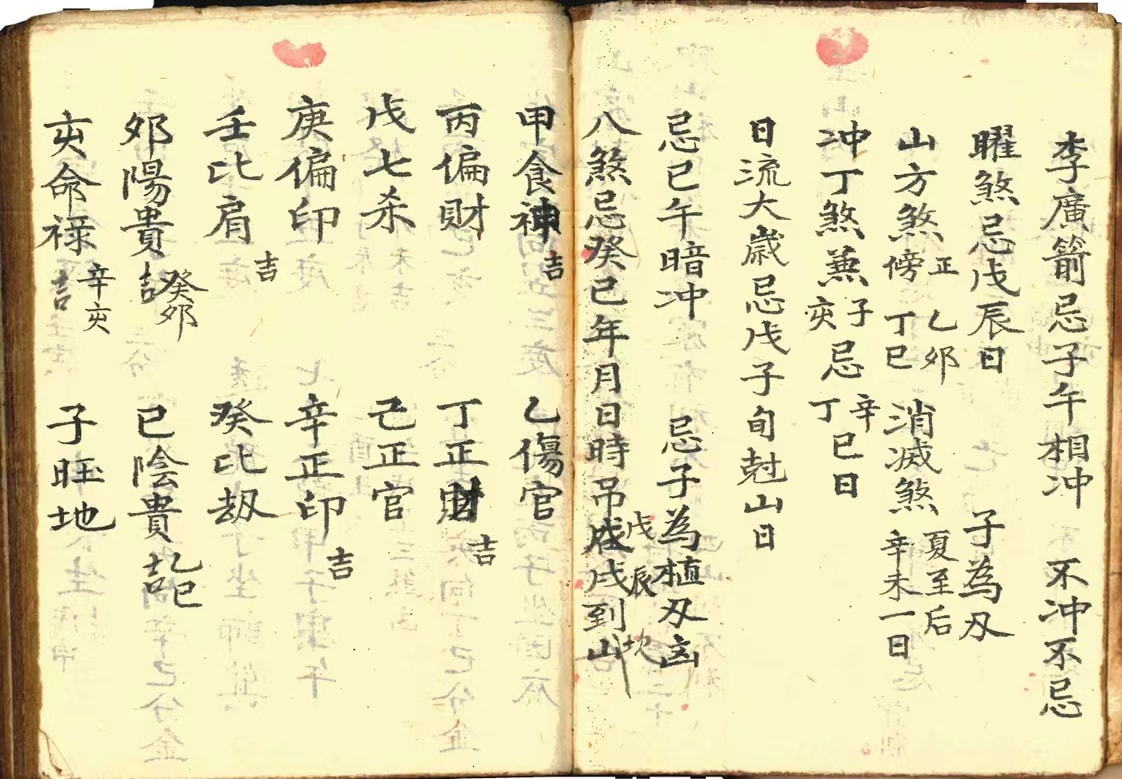 李廣箭忌子午相冲　不冲不忌
曜煞忌戊辰日　子為刃
山方煞正乙夘　消滅煞夏至后
傍丁巳　辛未一日
冲丁煞兼子亥忌辛丁巳日
日流大歲忌戊子旬尅山日
忌巳午暗冲　忌子為植刃
八煞忌癸巳年月日時吊　戊到山
戊辰坎
甲食神吉　乙傷官
丙偏財　丁正財吉
戊七杀　己正官
庚偏印　辛正印吉
壬比肩吉　癸比刼
夘陽貴吉癸夘　巳陰貴
亥命禄吉辛亥　子旺地